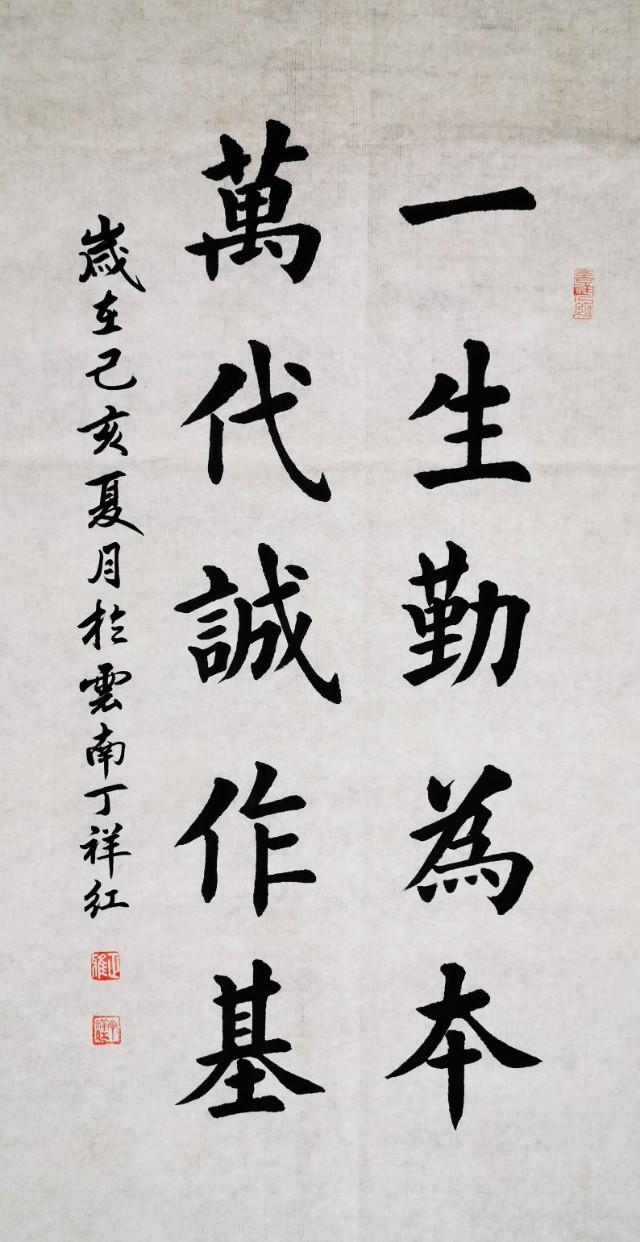 一生勤為本
萬代誠作基
歲在己亥夏月於雲南丁祥紅